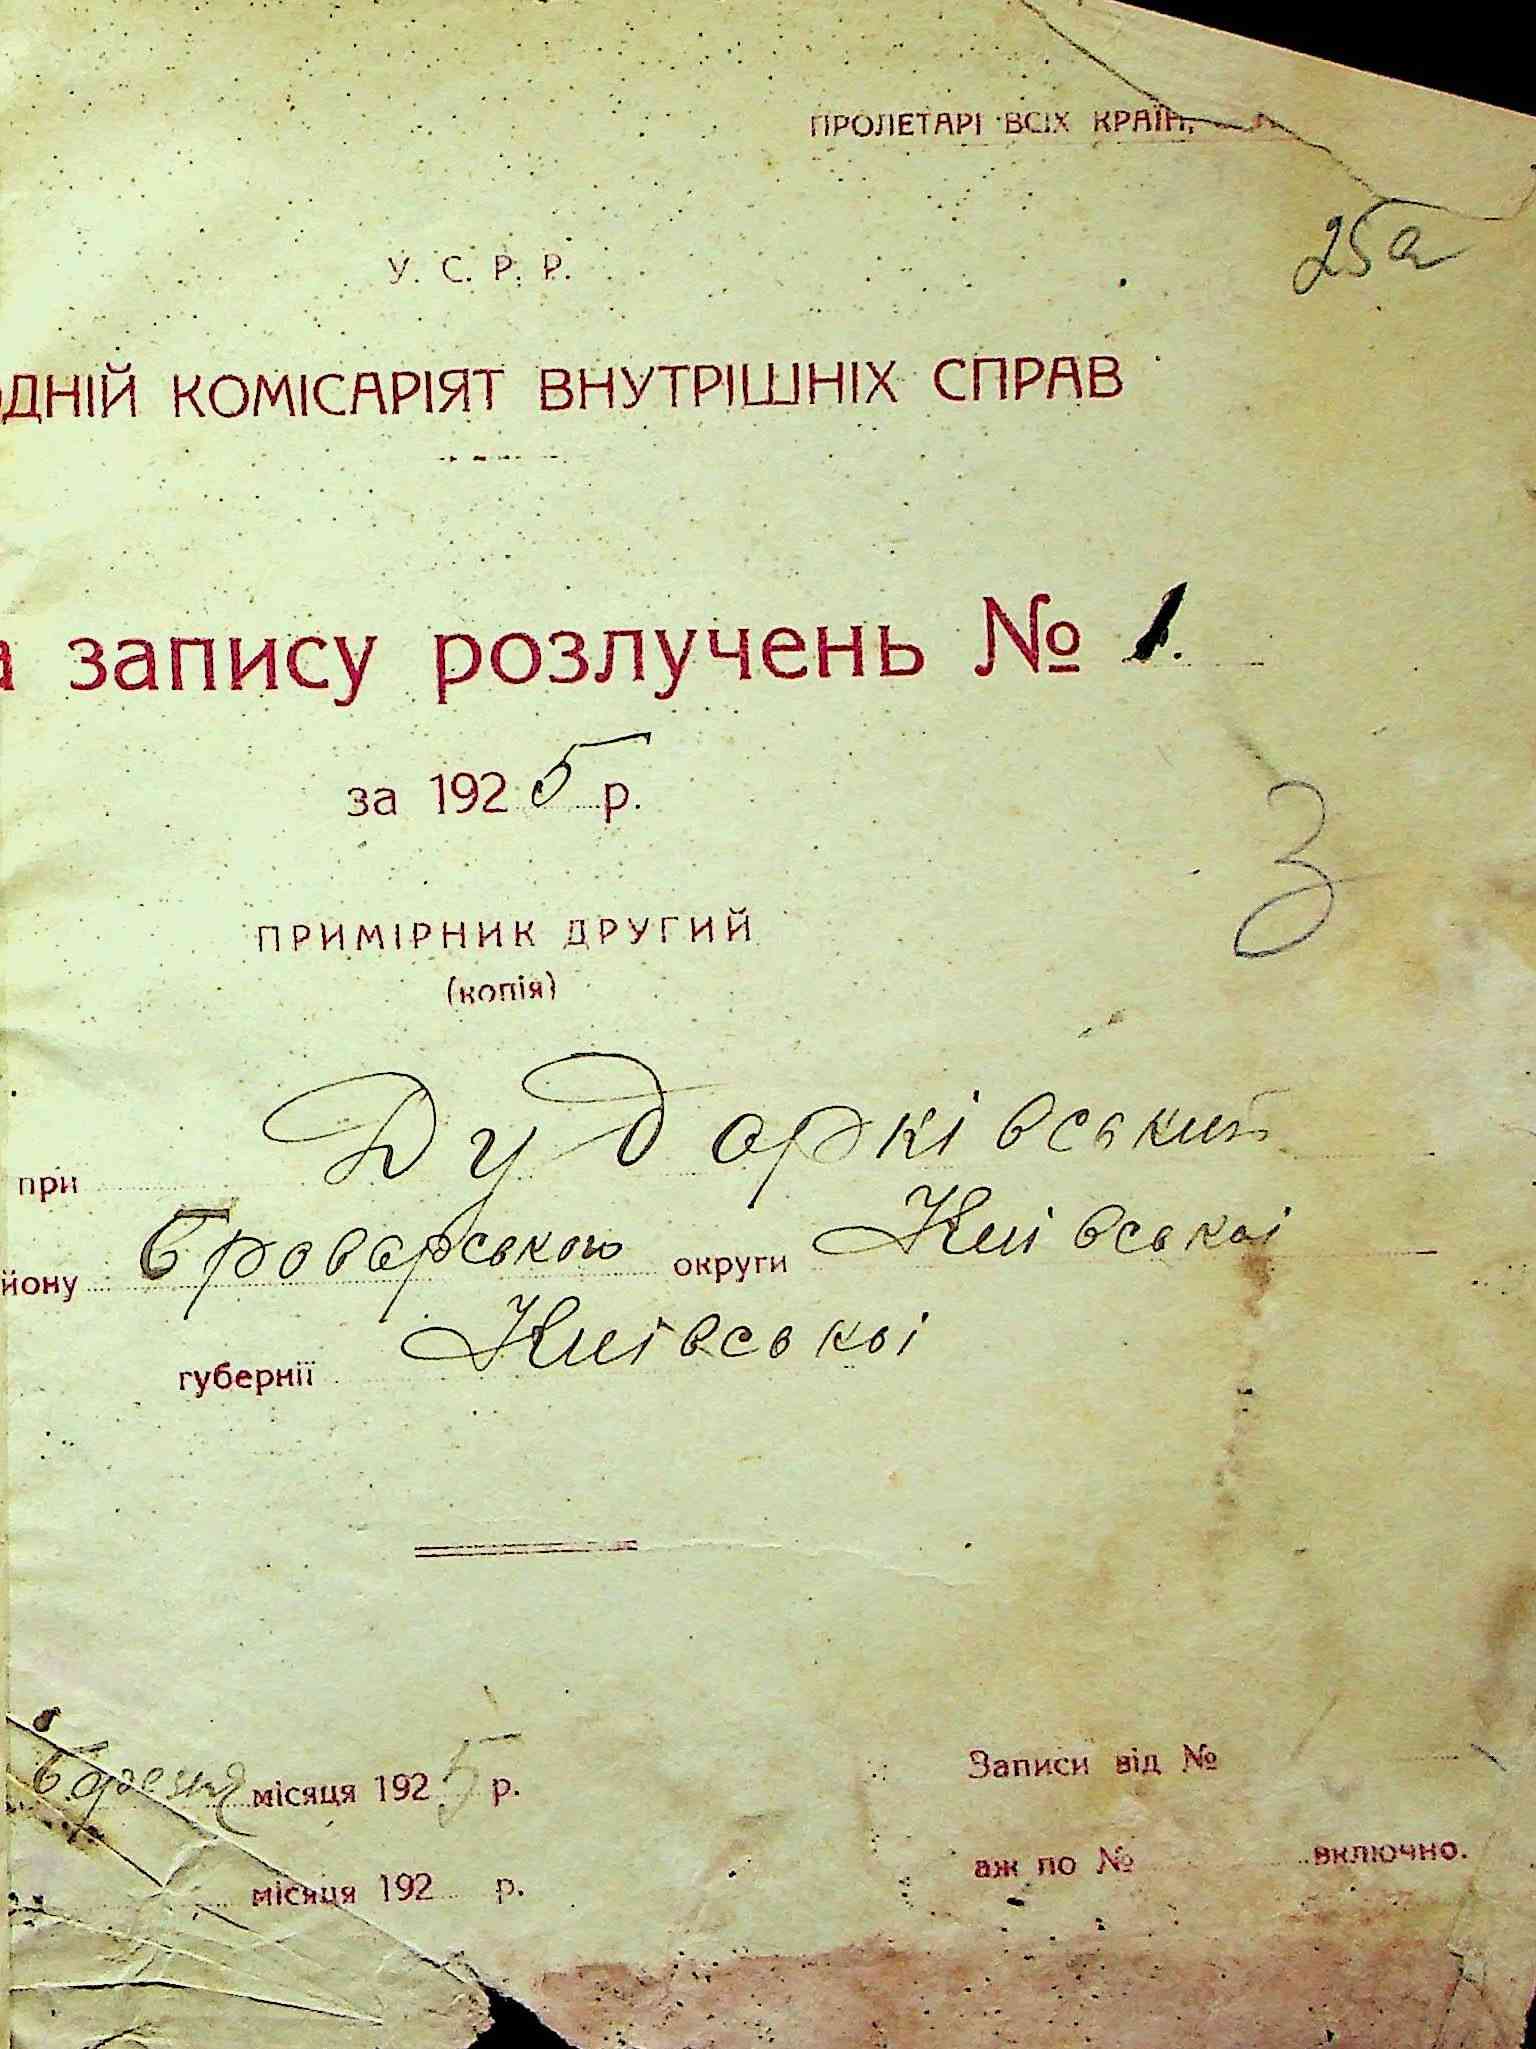 ПРОЛЕТАРІ ВСІХ КРАЇН,
25а
У. С. Р. Р.
ОДНІЙ КОМІСАРІЯТ ВНУТРІШНІХ СПРАВ
а запису розлучень № 1.
за 1925 р.
3
ПРИМІРНИК ДРУГИЙ
(копія)
при Дударківський
йону Броварською округи Київської
губернії Київської
Березня місяця 1925 р.
місяця 192 р.
Записи від №
аж по № включно.